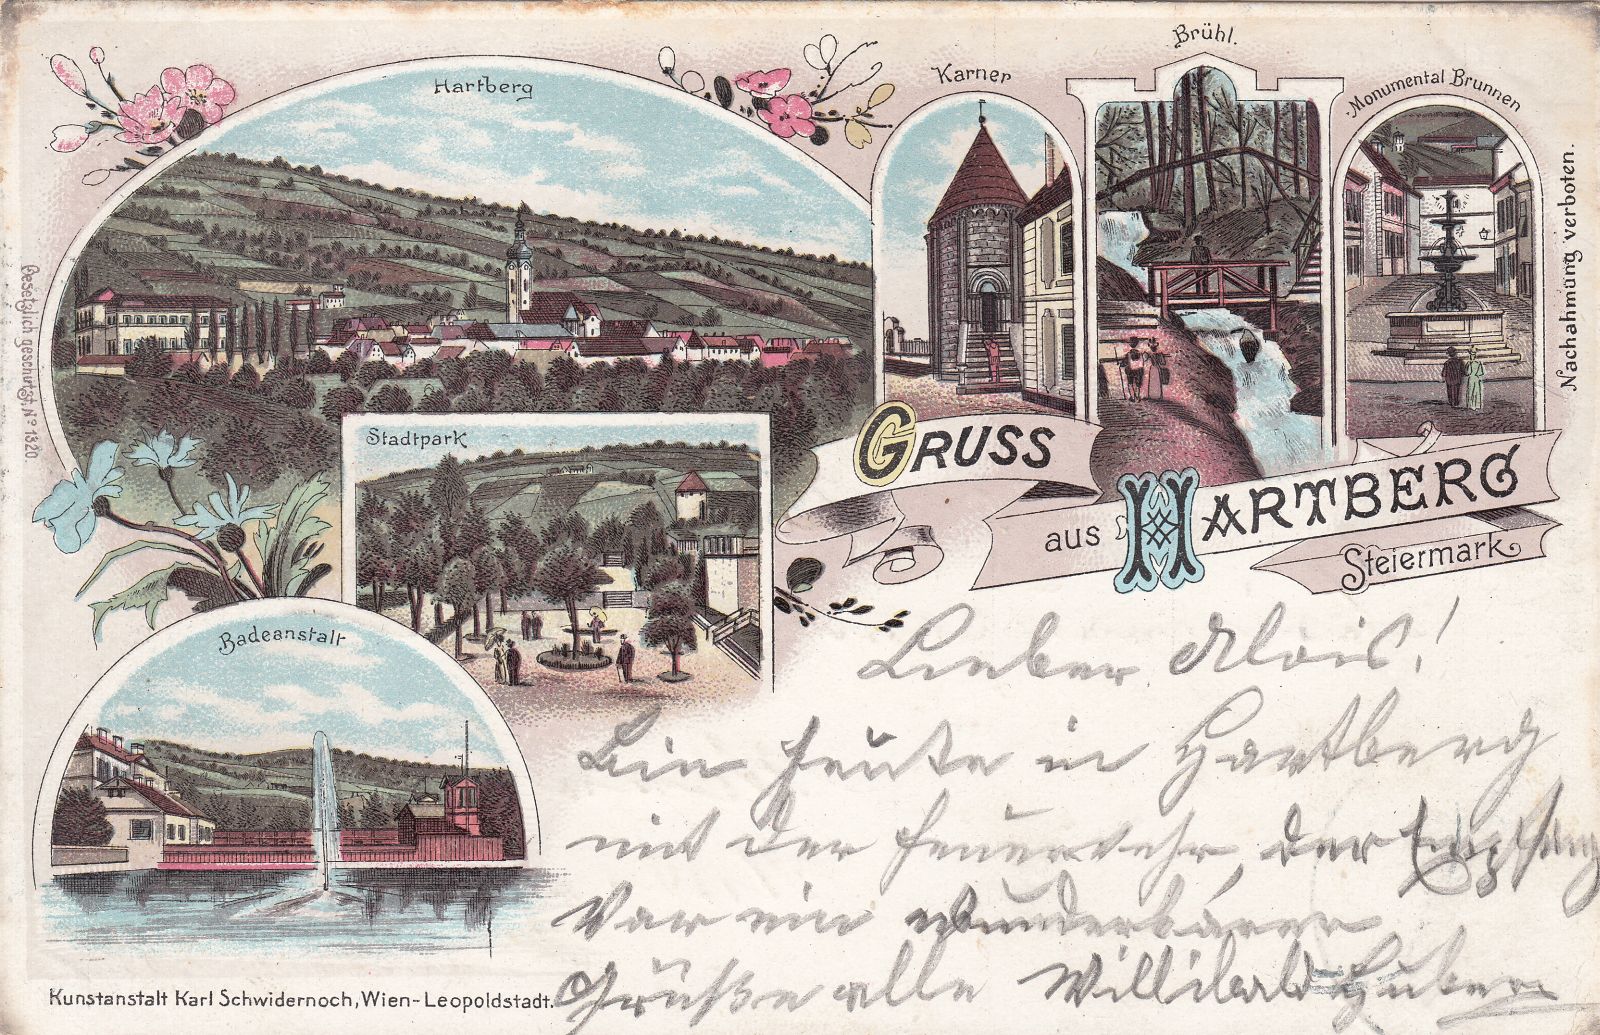 Hartberg
Karner
Brühl.
Monumental Brunnen
Nachahmung verboten.
Gesetzlich geschützt. No 1320
Stadtpark
Badeanstalt
GRUSS
aus HARTBERG
Steiermark
Lieber Alois!
Bin heute in Hartberg
mit der Feuerwehr, der Empfang
War ein wunderbarer
Grüße alle Willibald Huber
Kunstanstalt Karl Schwidernoch, Wien-Leopoldstadt.